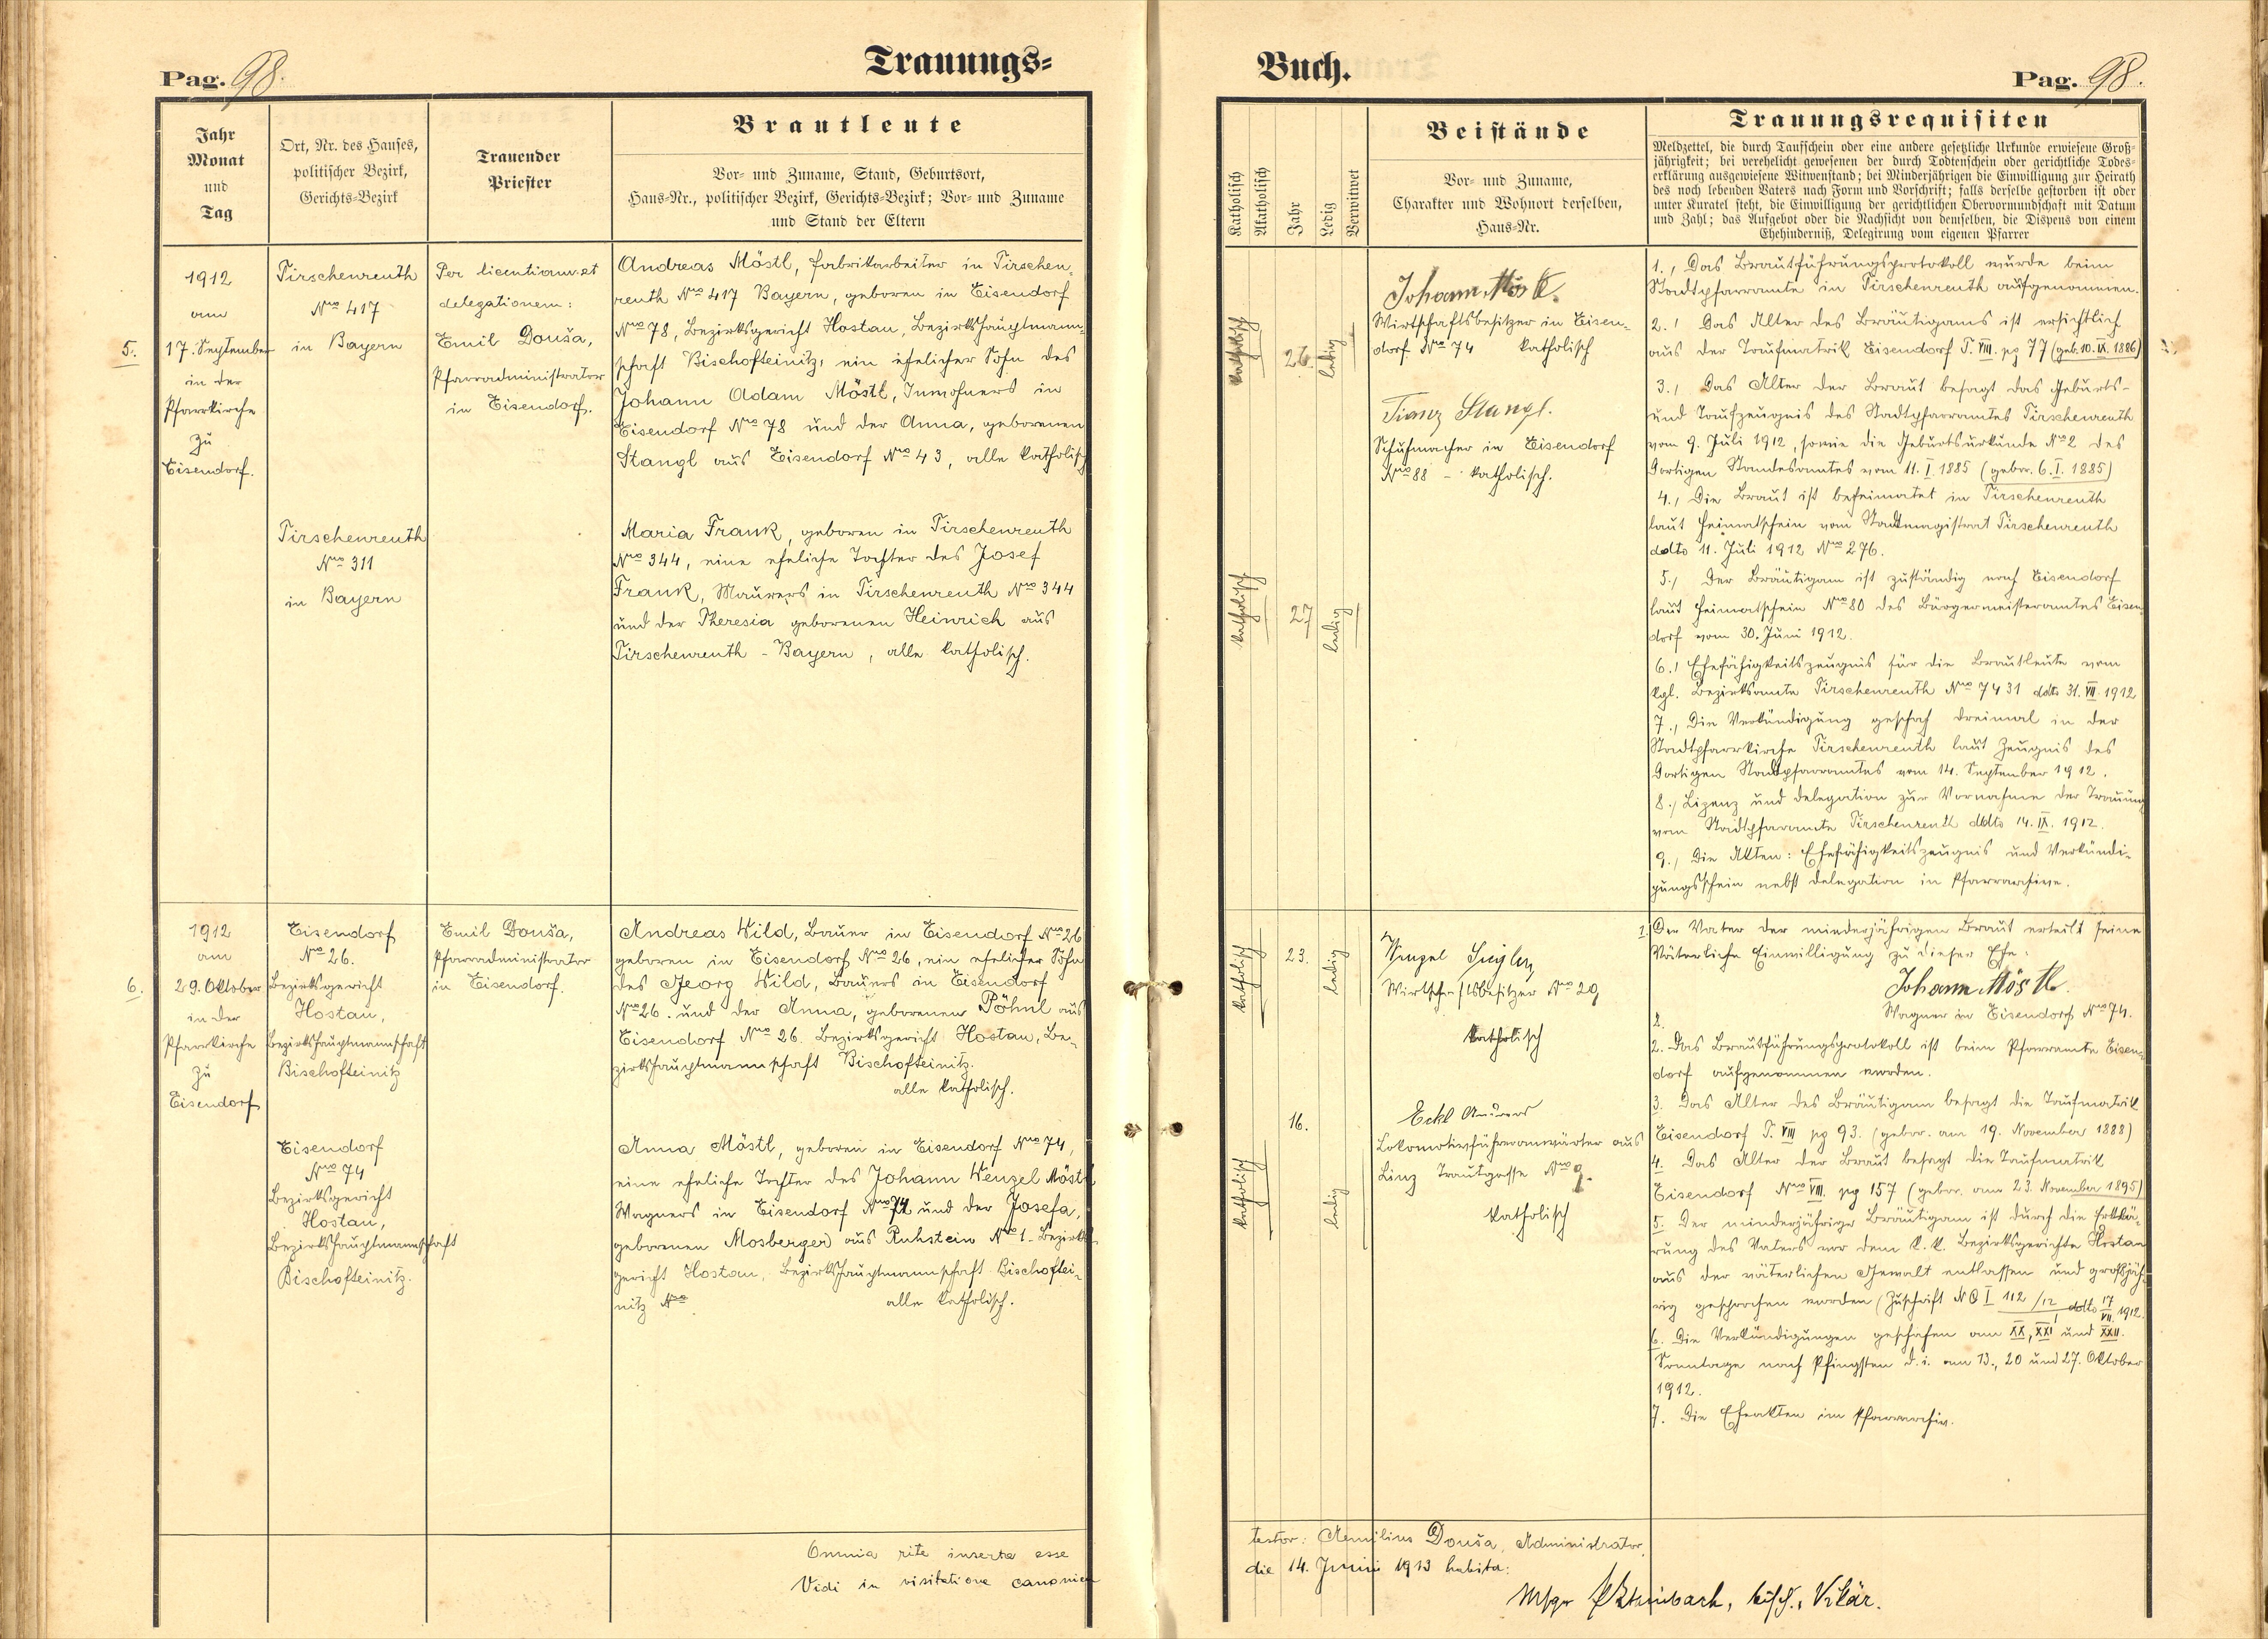 Pag. 98.
Trauungs=
Jahr
Monat
und
Tag
Ort, Nr. des Hauses,
politischer Bezirk,
Gerichts-Bezirk
Trauender
Priester
Brautleute
Vor- und Zuname, Stand, Geburtsort,
Haus-Nr., politischer Bezirk, Gerichts-Bezirk; Vor- und Zuname
und Stand der Eltern
5.
1912
am
17. September
in der
Pfarrkirche
zu
Eisendorf.
Tirschenreuth
Nro 417
in Bayern
Per licentiam et
delegationem:
Emil Douša,
Pfarradministrator
in Eisendorf.
Andreas Möstl, Fabrikarbeiter in Tirschen-
reuth Nro 417 Bayern, geboren in Eisendorf
Nro 78, Bezirksgericht Hostau, Bezirkshauptmann-
schaft Bischofteinitz, ein ehelicher Sohn des
Johann Adam Möstl, Inwohners in
Eisendorf Nro 78 und der Anna, geborenen
Stangl aus Eisendorf Nro 43, alle katholisch
Tirschenreuth
Nro 311
in Bayern
Maria Frank, geboren in Tirschenreuth
Nro 344, eine eheliche Tochter des Josef
Frank, Maurers in Tirschenreuth Nro 344
und der Theresia geborenen Heinrich aus
Tirschenreuth - Bayern, alle katholisch.
6.
1912
am
29. Oktober
in der
Pfarrkirche
zu
Eisendorf
Eisendorf
Nro 26.
Bezirksgericht
Hostau,
Bezirkshauptmannschaft
Bischofteinitz
Emil Douša,
Pfarradministrator
in Eisendorf.
Andreas Wild, Bauer in Eisendorf Nro 26
geboren in Eisendorf Nro 26, ein ehelicher Sohn
des Georg Wild, Bauers in Eisendorf
Nro 26. und der Anna, geborenen Pöhnl aus
Eisendorf Nro 26. Bezirksgericht Hostau, Be-
zirkshauptmannschaft Bischofteinitz.
alle katholisch.
Eisendorf
Nro 74
Bezirksgericht
Hostau,
Bezirkshauptmannschaft
Bischofteinitz.
Anna Möstl, geboren in Eisendorf Nro 74,
eine eheliche Tochter des Johann Wenzel Möstl
Wagners in Eisendorf Nro 74 und der Josefa,
geborenen Mosberger aus Ruhstein Nro 1. Bezirks-
gericht Hostau, Bezirkshauptmannschaft Bischoftei-
nitz Nro alle katholisch.
Omnia rite inserta esse
Vidi in visitatione canonica
Buch.
Pag. 98.
Katholisch
Akatholisch
Jahr
Ledig
Verwitwet
Beistände
Vor- und Zuname,
Charakter und Wohnort derselben,
Haus-Nr.
Trauungsrequisiten
Meldzettel, die durch Taufschein oder eine andere gesetzliche Urkunde erwiesene Groß-
jährigkeit; bei verehelicht gewesenen der durch Todtenschein oder gerichtliche Todes-
erklärung ausgewiesene Witwenstand; bei Minderjährigen die Einwilligung zur Heirath
des noch lebenden Vaters nach Form und Vorschrift; falls derselbe gestorben ist oder
unter Kuratel steht, die Einwilligung der gerichtlichen Obervormundschaft mit Datum
und Zahl; das Aufgebot oder die Nachsicht von demselben, die Dispens von einem
Ehehinderniß, Delegirung vom eigenen Pfarrer
katholisch
26.
ledig
Johann Möstl.
Wirtschaftsbesitzer in Eisen-
dorf Nro 74 katholisch
Franz Stangl.
Schuhmacher in Eisendorf
Nro 88 - katholisch.
katholisch
27
ledig
1., Das Brautführungsprotokoll wurde beim
Stadtpfarramte in Tirschenreuth aufgenommen.
2., Das Alter des Bräutigams ist ersichtlich
aus der Taufmatrik Eisendorf T. VIII. pg 77 (geb. 10. IX. 1886)
3., Das Alter der Braut besagt das Geburts-
und Taufzeugnis des Stadtpfarramtes Tirschenreuth
vom 9. Juli 1912, sowie die Geburtsurkunde Nro 2 des
dortigen Standesamtes vom 11. I. 1885 (gebor. 6. I. 1885)
4., Die Braut ist beheimatet in Tirschenreuth
laut Heimatschein vom Stadtmagistrat Tirschenreuth
ddto 11. Juli 1912 Nro 276.
5., Der Bräutigam ist zuständig nach Eisendorf
laut Heimatschein Nro 80 des Bürgermeisteramtes Eisen-
dorf vom 30. Juni 1912.
6., Ehefähigkeitszeugnis für die Brautleute vom
kgl. Bezirksamte Tirschenreuth Nro 7431 ddto 31. VII. 1912
7., Die Verkündigung geschah dreimal in der
Stadtpfarrkirche Tirschenreuth laut Zeugnis des
dortigen Stadtpfarramtes vom 14. September 1912.
8., Lizenz und Delegation zur Vornahme der Trauung
vom Stadtpfarramte Tirschenreuth ddto 14. IX. 1912.
9., Die Akten: Ehefähigkeitszeugnis und Verkündi-
gungsschein nebst Delegation in Pfarrarchive.
katholisch
23.
ledig
Wenzel
Wirtschaftsbesitzer Nro 29
katholisch
16.
katholisch
ledig
Eckl Andreas
Lokomotivführeranwärter aus
Linz Trautgasse Nro 9.
katholisch
1. Der Vater der minderjährigen Braut erteilt seine
väterliche Einwilligung zu dieser Ehe.
Johann Möstl.
Wagner in Eisendorf Nro 74.
2.
2. Das Brautführungsprotokoll ist beim Pfarramte Eisen-
dorf aufgenommen worden.
3. Das Alter des Bräutigam besagt die Taufmatrik
Eisendorf T. VIII pg 93. (gebor. am 19. November 1888)
4. Das Alter der Braut besagt die Taufmatrik
Eisendorf Nro VIII. pg 157 (gebor. am 23. November 1895)
5. Der minderjährige Bräutigam ist durch die Erklä-
rung des Vaters vor dem k. k. Bezirksgerichte Hostau
aus der väterlichen Gewalt entlassen und großjäh-
rig gesprochen worden (Zuschrift N Q I 112/12 ddto 17/VII. 1912.
6. Die Verkündigungen geschahen am XX, XXI und XXII.
Sonntage nach Pfingsten d. i. am 13., 20 und 27. Oktober
1912.
7. Die Eheakten im Pfarrarchiv.
testor: Aemilius Douša, Administrator.
die 14. Junii 1913 habita:
Msgr bisch. Vikär.